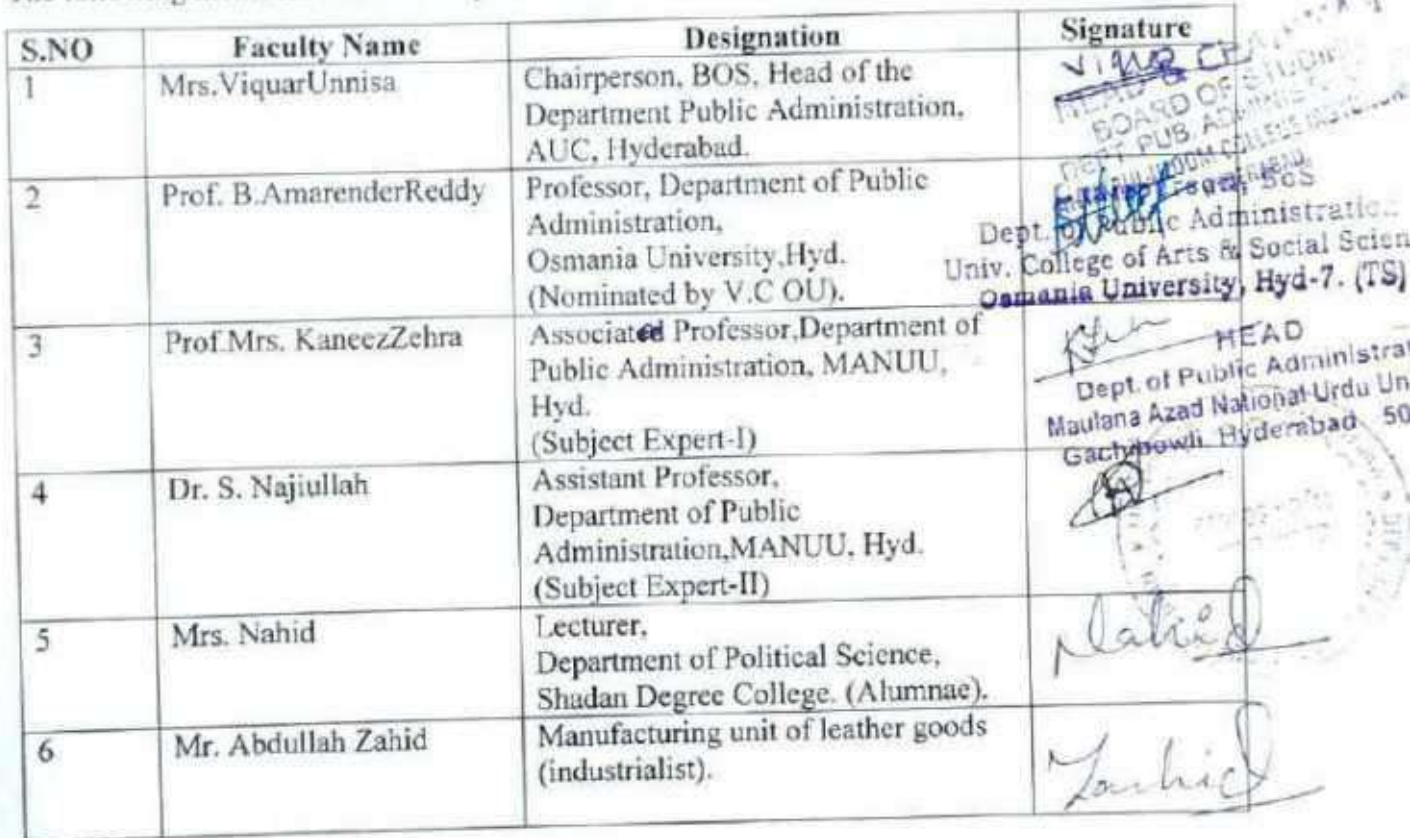 S.NO Faculty Name Designation Signature
1 Mrs.ViquarUnnisa Chairperson, BOS, Head of the
Department Public Administration,
AUC, Hyderabad.
HEAD
BOARD OF STUDIES
DEPT PUB. ADMINIS
COLLEGE
2 Prof. B.AmarenderReddy Professor, Department of Public
Administration,
Osmania University,Hyd.
(Nominated by V.C OU).
BoS
Dept. of Public Administration
Univ. College of Arts & Social Scien
Osmania University, Hyd-7. (TS)
3 Prof.Mrs. KaneezZehra Associated Professor,Department of
Public Administration, MANUU,
Hyd.
(Subject Expert-I)
HEAD
Dept. of Public Administra
Maulana Azad National Urdu Un
Gachibowli Hyderabad 50
4 Dr. S. Najiullah Assistant Professor,
Department of Public
Administration,MANUU, Hyd.
(Subject Expert-II)
5 Mrs. Nahid Lecturer,
Department of Political Science,
Shadan Degree College. (Alumnae).
Nahid
6 Mr. Abdullah Zahid Manufacturing unit of leather goods
(industrialist).
Zahid